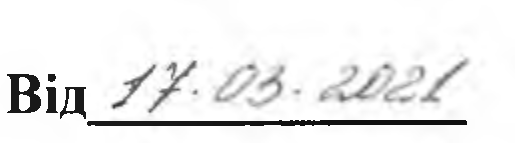 Від 17.03.2021